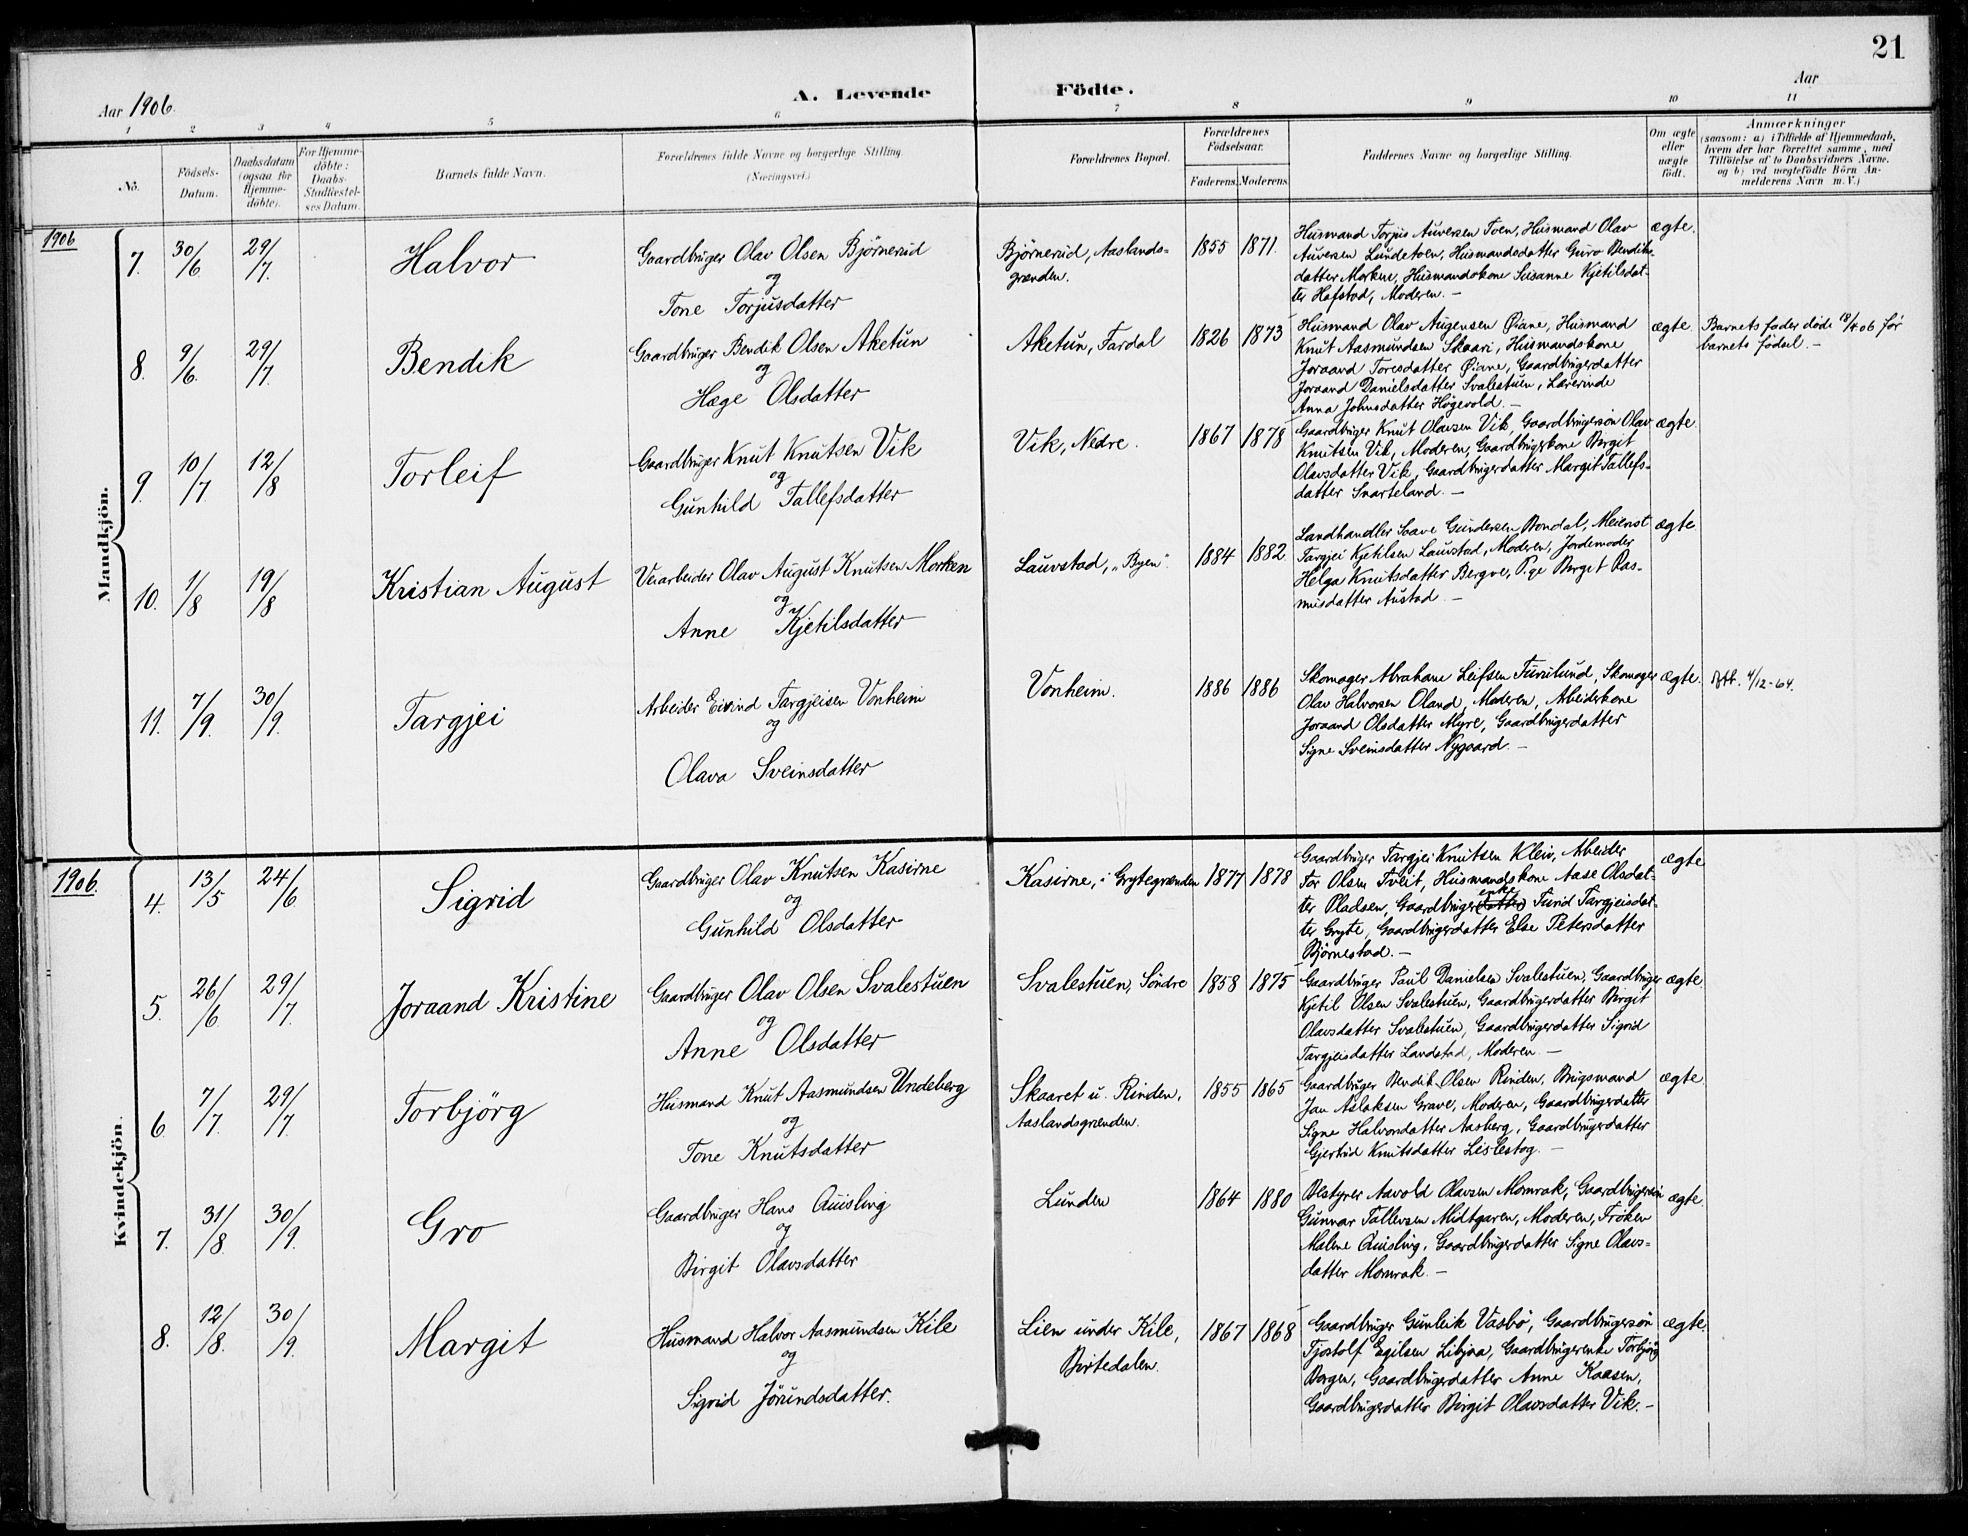 21
Aar 1906.
A. Levende Födte.
Aar
1 2 3 4 5 6 7 8 9 10 11
No.
Födsels-
Datum.
Daabsdatum
(ogsaa for
Hjemme-
döbte).
For Hjemme-
döbte:
Daabs-
Stadfæstel-
ses Datum.
Barnets fulde Navn.
Forældrenes fulde Navne og borgerlige Stilling.
(Næringsvei.)
Forældrenes Bopæl.
Forældrenes
Födselsaar.
Faderens. Moderens.
Faddernes Navne og borgerlige Stilling.
Om ægte
eller
uægte
födt.
Anmærkninger
(saasom: a) i Tilfælde af Hjemmedaab,
hvem der har forrettet samme, med
Tilföielse af to Daabsvidners Navne.
og b) ved uægtefödte Börn An-
melderens Navn m.V.)
1906
Mandkjön.
7. 30/6 29/7. Halvor
Gaardbruger Olav Olsen Bjørnerud
og
Tone Torjusdatter
Bjørnerud, Aaslands-
grænden.
1855 1871.
Husmand Torjus Auversen Toen, Husmand Olav
Auversen Lundetoen, Husmandsdatter Guro Bendiks-
datter Morkne, Husmandskone Susanne Kjetilsdat-
ter Hafstad, Moderen. -
ægte.
8. 9/6. 29/7. Bendik
Gaardbruger Bendik Olsen Aketun
og
Hæge Olsdatter
Aketun, Fardal
1826 1873
Husmand Olav Augensen Øiane, Husmand
Knut Aasmundsen Skaari, Husmandskone
Joraand Toresdatter Øiane, Gaardbrugerdatter
Joraand Danielsdatter Svalestuen, Lærerinde
Anna Johnsdatter Høgevold. -
ægte.
Barnets fader døde 18/4 06 før
barnets fødsel. -
9. 10/7 12/8 Torleif
Gaardbruger Knut Knutsen Vik
og
Gunhild Tallefsdatter
Vik, Nedre.
1867 1878
Gaardbruger Knut Olavsen Vik, Gaardbrugersøn Olav
Knutsen Vik, Moderen, Gaardbrugerkone Birgit
Olavsdatter Vik, Gaardbrugerdatter Margit Tallefs-
datter Snarteland. -
ægte.
10. 1/8 19/8 Kristian August
Veiarbeider Olav August Knutsen Morken
og
Anne Kjetilsdatter
Lauvstad, "Byen".
1884 1882
Landhandler Saave Gundersen Bondal,
Targjei Kjetilsen Lauvstad, Moderen, Jordemoder
Helga Knutsdatter Bergve, Pige Birgit Ras-
musdatter Austad. -
ægte
11. 7/9. 30/9. Targjei
Arbeider Eivind Targjeisen Vonheim
og
Olava Sveinsdatter
Vonheim.
1886 1886
Skomager Abraham Leifsen Furulund, Skomager
Olav Halvorsen Oland, Moderen, Arbeiderkone
Joraand Olsdatter Myre, Gaardbrugerdatter
Signe Sveinsdatter Nygaard. -
ægte.
4/12-64.
1906.
Kvindekjön.
4. 13/5 24/6 Sigrid
Gaardbruger Olav Knutsen Kasirne
og
Gunhild Olsdatter
Kasirne, i Grytegrænden
1877 1878
Gaardbruger Targjei Knutsen Kleiv, Arbeider
Tor Olsen Tveit, Husmandskone Aase Olsdat-
ter Pladsen, Gaardbruger(datter) enke Turid Targjeisdat-
ter Gryte, Gaardbrugerdatter Else Petersdatter
Bjørnestad. -
ægte
5. 26/6 29/7. Joraand Kristine
Gaardbruger Olav Olsen Svalestuen
og
Anne Olsdatter
Svalestuen, Söndre
1858 1875
Gaardbruger Paul Danielsen Svalestuen, Gaardbruger
Kjetil Olsen Svalestuen, Gaardbrugerdatter Birgit
Olavsdatter Svalestuen, Gaardbrugerdatter Sigrid
Targjeisdatter Landstad, Moderen. -
ægte.
6. 7/7. 29/7. Torbjörg
Husmand Knut Aasmundsen Undeberg
og
Tone Knutsdatter
Skaaret u. Rinden,
Aaslandsgrænden.
1855 1865
Gaardbruger Bendik Olsen Rinden, Brugsmand
Jan Aslaksen Grave, Moderen, Gaardbrugerdatter
Signe Halvorsdatter Aasberg, Gaardbrugerdatter
Gjertrud Knutsdatter Lislestog. -
ægte
7. 31/8. 30/9. Gro
Gaardbruger Hans Quisling
og
Birgit Olavsdatter
Lunden
1864 1880
Bestyrer Aavold Olavsen Momrak, Gaardbrugersön
Gunnar Tallevsen Midtgaren, Moderen, Frøken
Malene Quisling, Gaardbrugerdatter Signe Olavs-
datter Momrak. -
ægte
8. 12/8. 30/9. Margit
Husmand Halvor Aasmundsen Kile
og
Sigrid Jörundsdatter.
Lien under Kile,
Birtedalen.
1867 1868
Gaardbruger Gunleik Vasbø, Gaardbrugersøn
Tjostolf Egilsen Libjaa, Gaardbrugerenke Torbjörg
Bergen, Gaardbrugerdatter Anne Kaasen,
Gaardbrugerdatter Birgit Olavsdatter Vik. -
ægte.